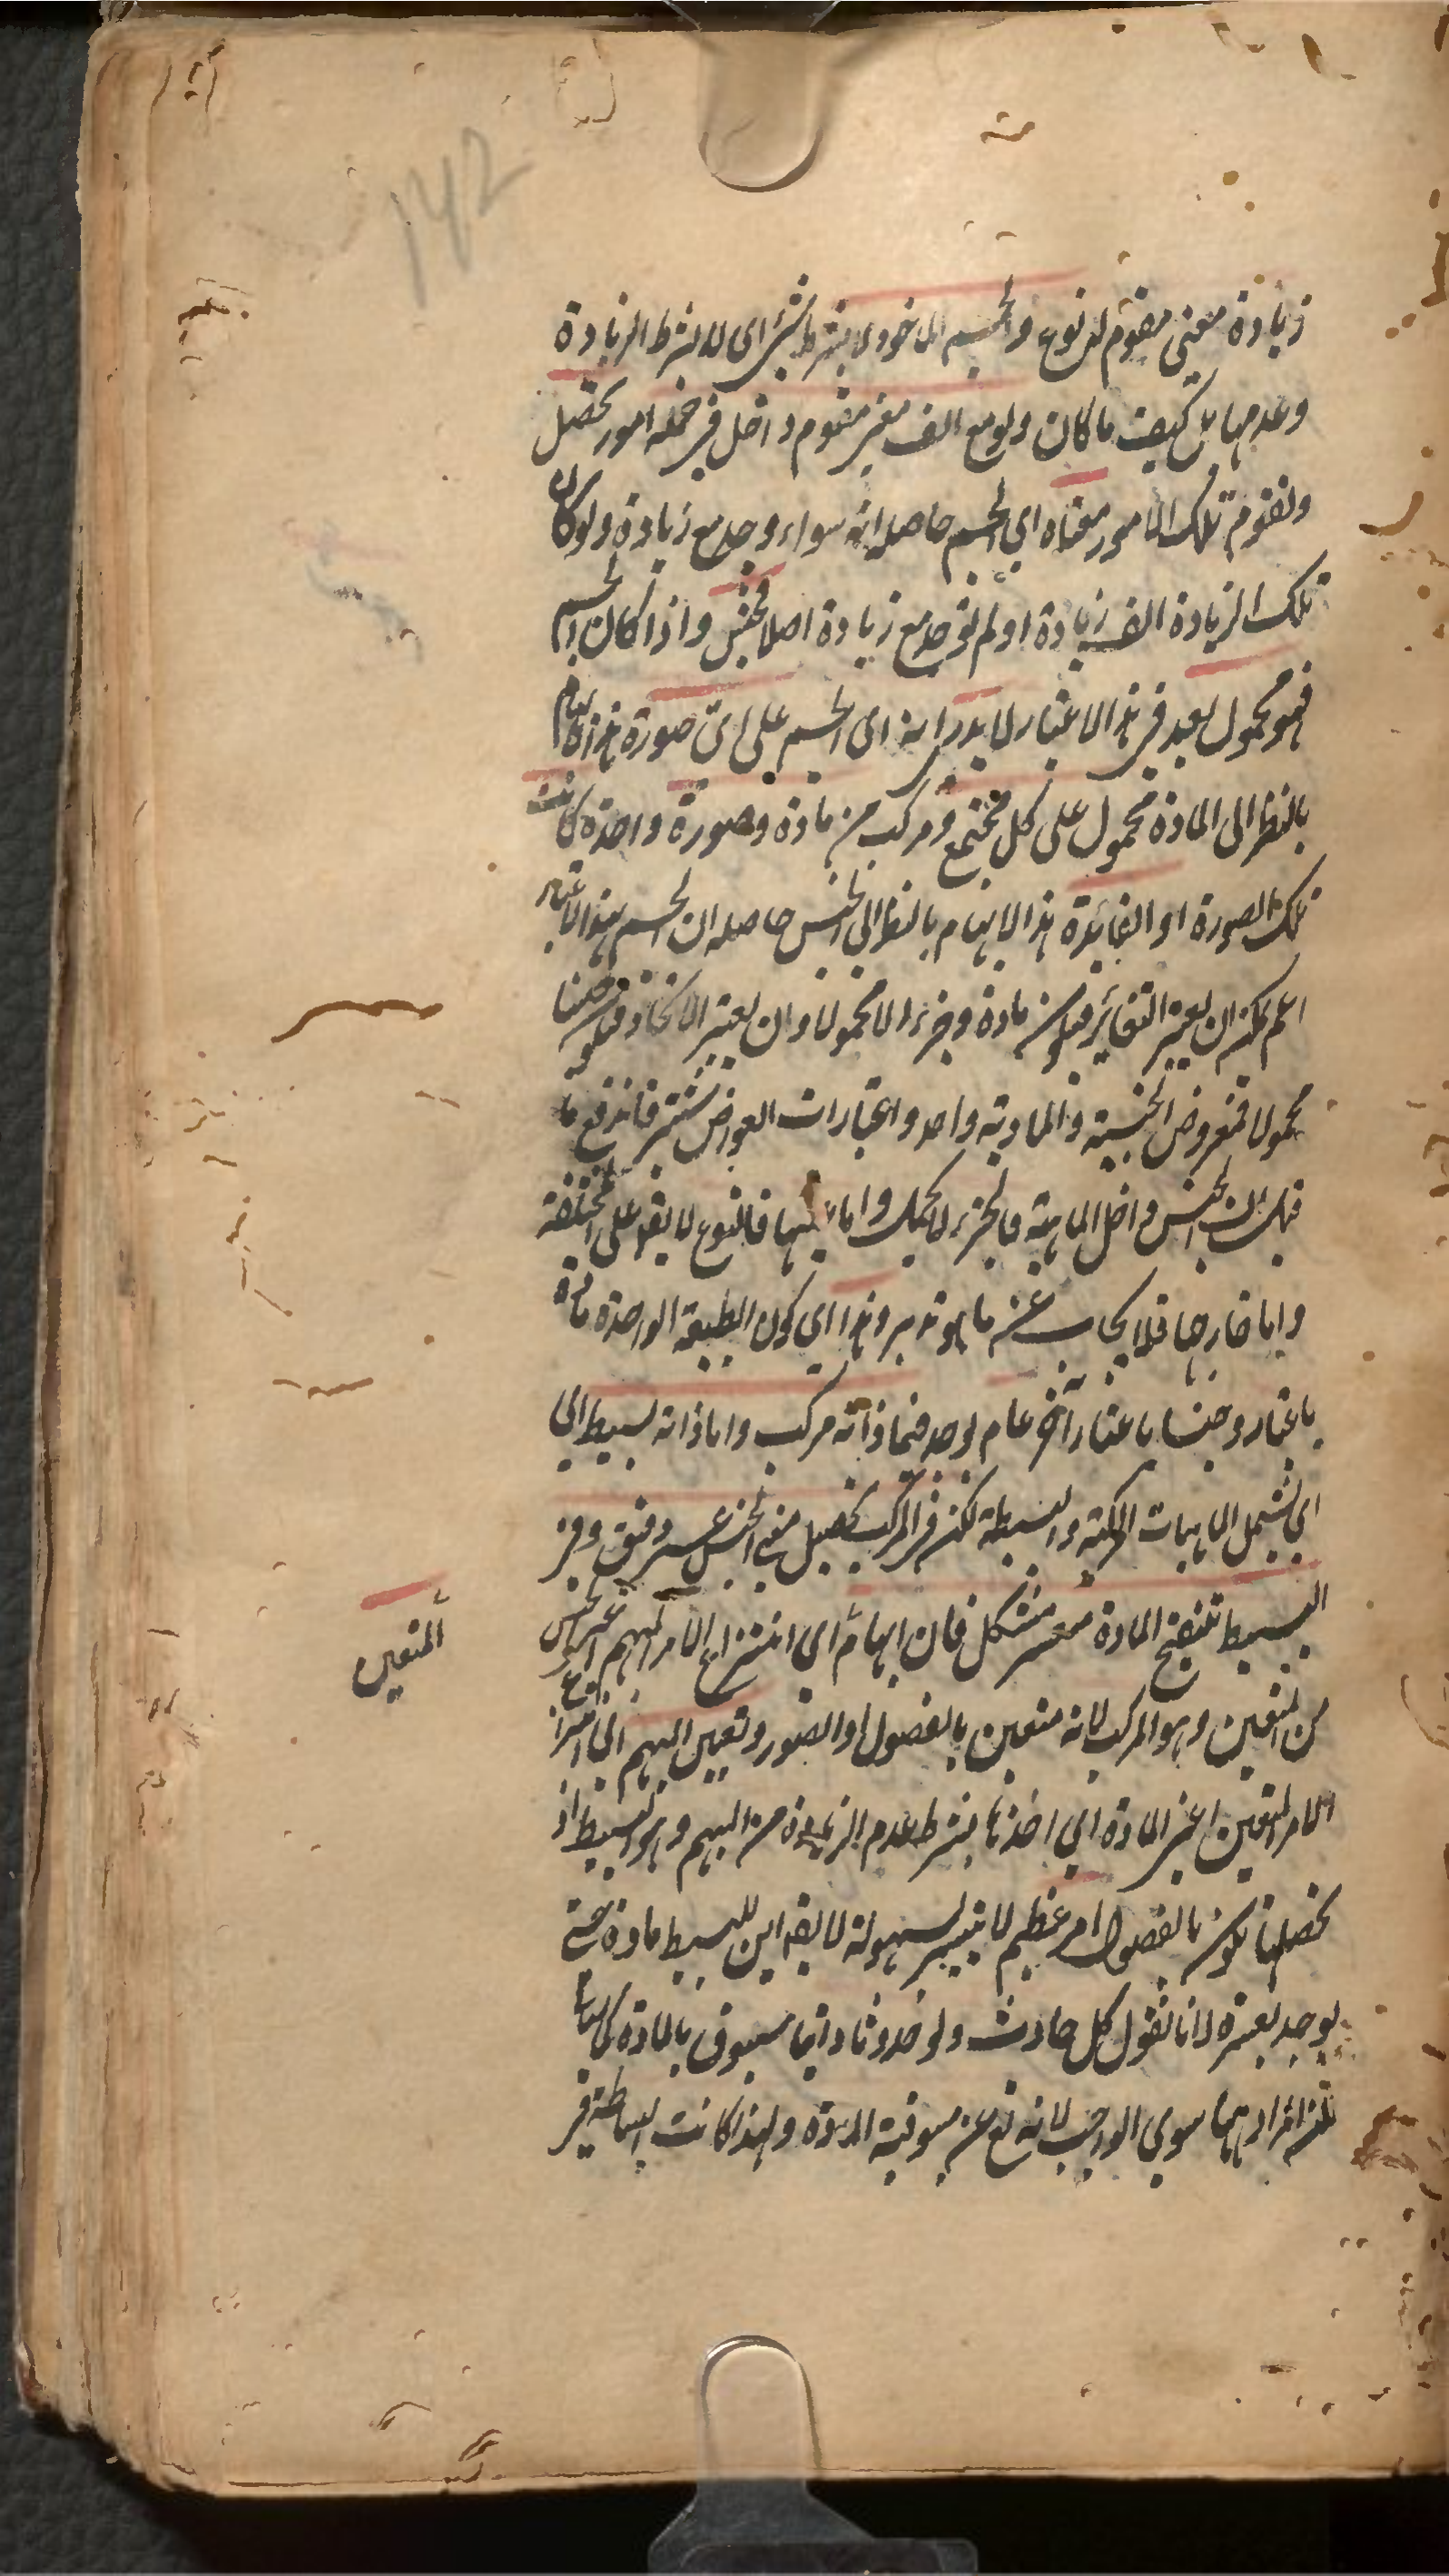 142
زيادة معنى مقوم لنوع والجسم الماخوذ لا بشرط شئ اى لا بشرط الزيادة
وعدمها بل كيف ما كان ولو مع الف معنى مقوم داخل فى جملة امور تحصل
وتقوم تلك الامور معناه اى الجسم حاصله انه سواء وجد مع زيادة ولو كان
تلك الزيادة الف زيادة او لم توجد مع زيادة اصلا جنس واذا كان الجسم
فهو مجهول بعد فى هذا الاعتبار لا يدرى انه اى الجسم على اى صورة هذا
بالنظر الى المادة محمول على كل مجتمع ومركب من مادة وصورة واحدة كانت
تلك الصورة او الف هذا الابهام بالنظر الى الجنس حاصله ان الجسم بهذا الاعتبار
اعم يمكن ان يعتبر التغاير فيكون مادة وجزءا لا محمولا وان يعتبر الاتحاد فيكون جنسا
محمولا فمعروض الجنسية والمادية واحد واعتبارات العوارض شتى فاندفع ما
قيل ان الجنس داخل الماهية والجزء لا يحمل واما عينها فالنوع لا يقع على المختلفة
واما خارجها فلا يجاب عنه ما هو تدبر وهذا اى كون الطبيعة الواحدة مادة
باعتبار وجنسا باعتبار آخر عام يوجد فيما ذاته مركب واما ذاته بسيط اى
اى يشمل الماهيات المركبة والبسيطة لكن فى المركب تحصيل معنى الجنس عسر دقيق وفى
البسيط تنقيح المادة متعسر مشكل فان ابهام اى انتزاع الامر المبهم اعنى الجنس
المتعين
من المتعين وهو المركب لانه متعين بالفصول او الصور وتعيين المبهم اى انتزاع
الامر المتعين اعنى المادة اى اخذها بشرط عدم الزيادة من المبهم وهو البسيط اذ
تحصلها يكون بالفصول امر عظيم لا يتيسر بسهولة لا يقال اين للبسيط مادة حتى
يوجد بعسرة لانا نقول كل حادث ولو حدوثا ذاتيا مسبوق بالمادة كما
لكن المراد بهما سوى الواجب لانه تع عن مسبوقية المادة ولهذا كانت البساطة فى